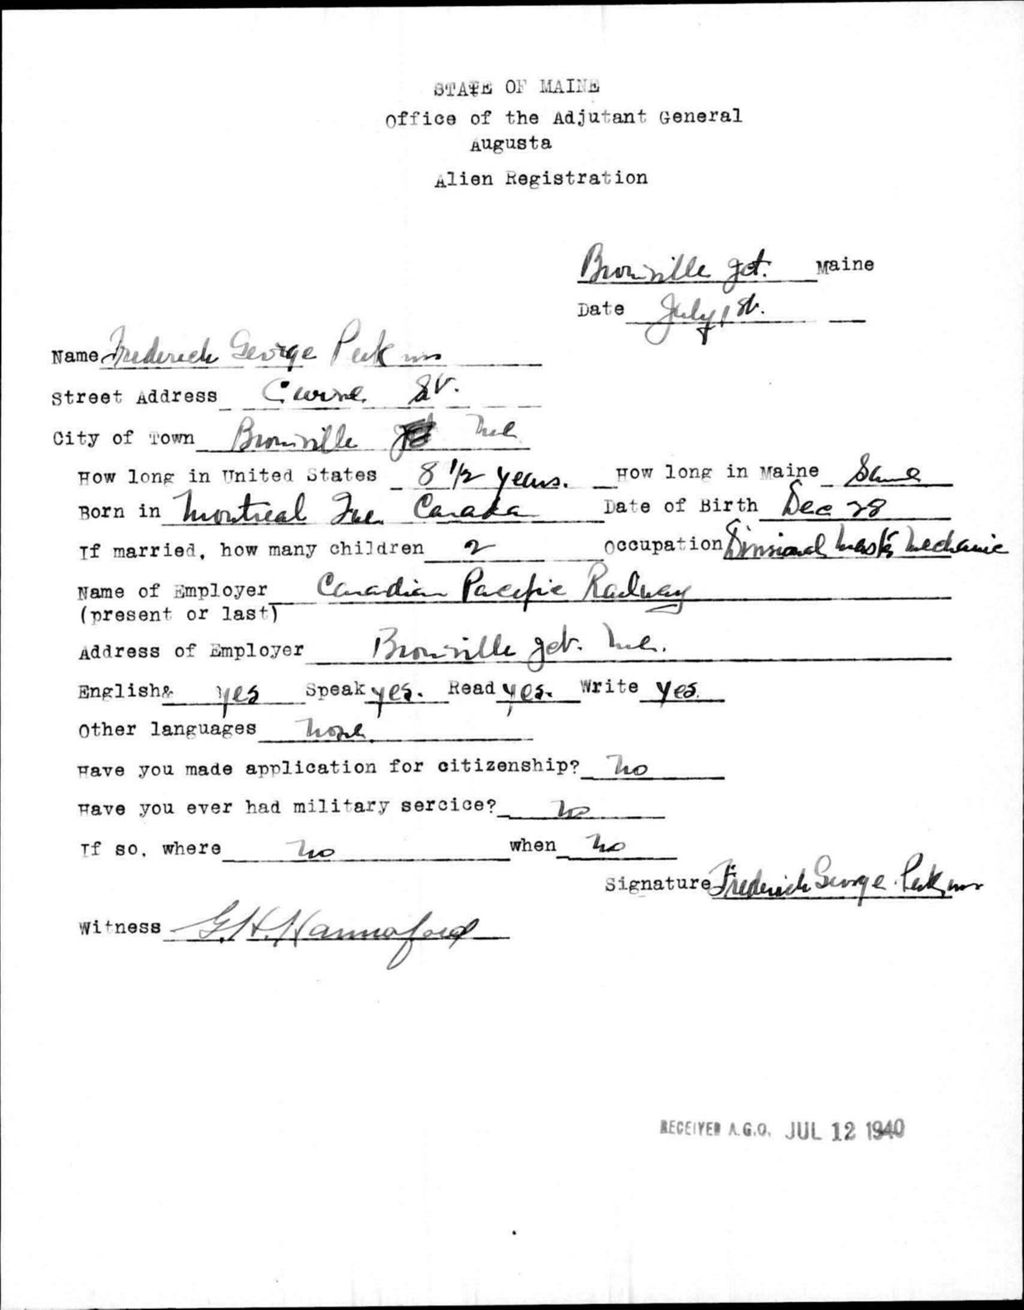 STATE OF MAINE
Office of the Adjutant General
Augusta
Alien Registration
Brownville Jct. Maine
Date July 1st.
Name Frederick George Perkins
Street Address St.
City of Town Brownville Jct Me
How long in United States 8 1/2 years. How long in Maine Same
Born in Montreal Que. Canada Date of Birth Dec 28
If married, how many children 2 Occupation Divisional Master Mechanic
Name of Employer Canadian Pacific Railway
(present or last)
Address of Employer Brownville Jct. Me.
English& yes Speak yes. Read yes. Write yes.
Other languages None
Have you made application for citizenship? No
Have you ever had military sercice? No
If so, where No when No
Signature Frederick George Perkins
Witness G.H. Hannaford
RECEIVED A.G.O. JUL 12 1940